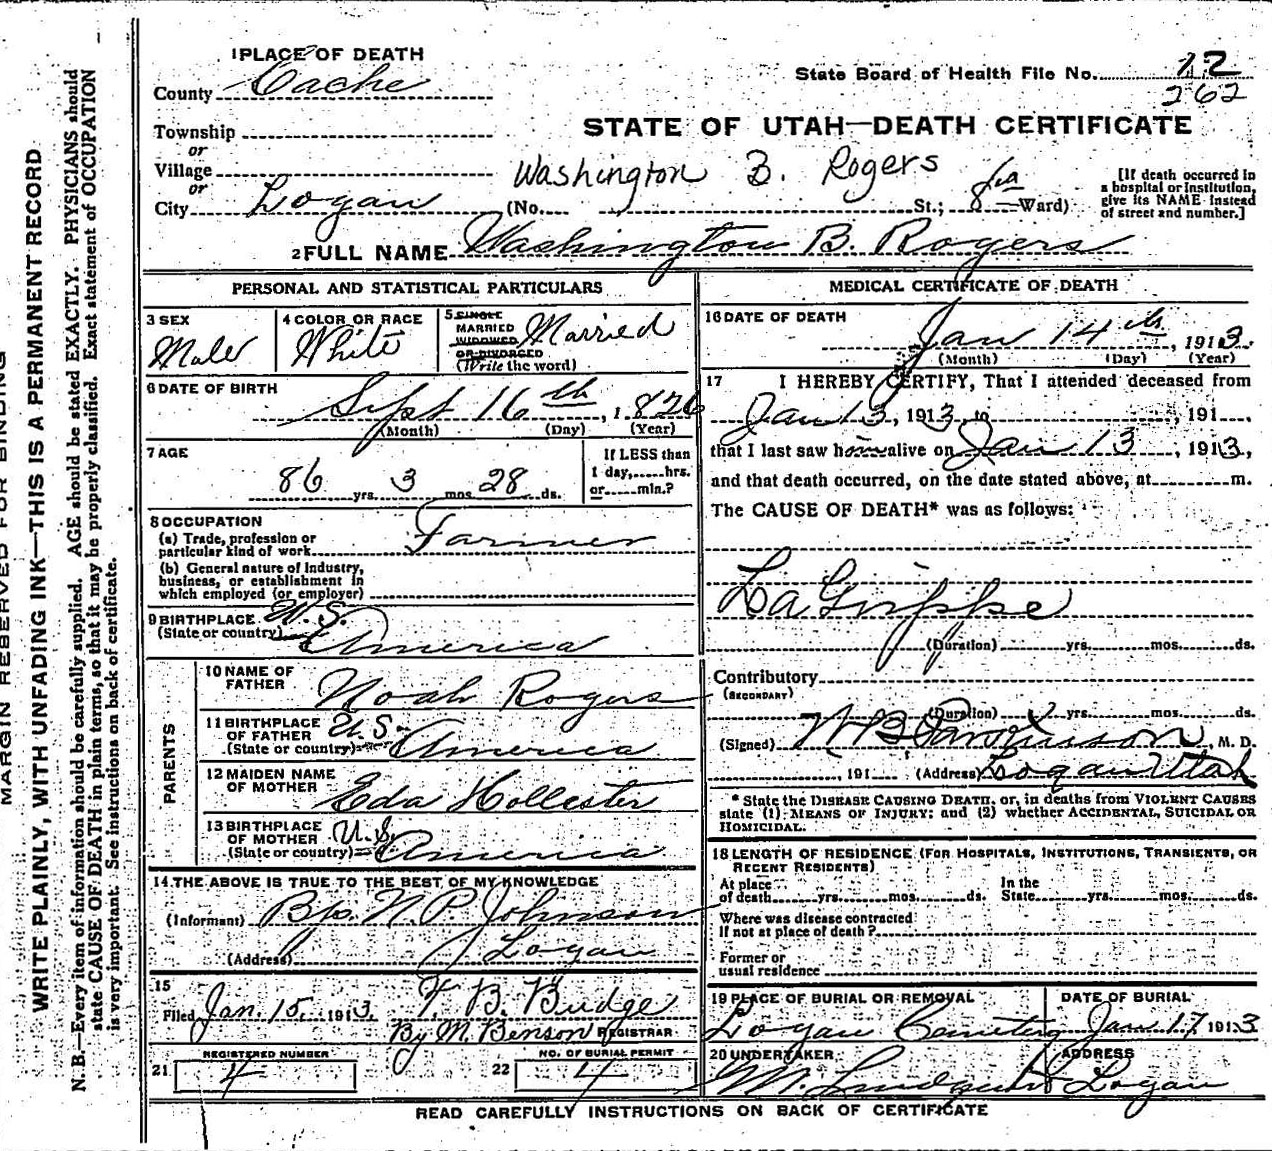 MARGIN RESERVED FOR BINDING
WRITE PLAINLY, WITH UNFADING INK—THIS IS A PERMANENT RECORD
N. B.—Every item of information should be carefully supplied. AGE should be stated EXACTLY. PHYSICIANS should
state CAUSE OF DEATH in plain terms, so that it may be properly classified. Exact statement of OCCUPATION
is very important. See instructions on back of certificate.
1 PLACE OF DEATH
County Cache
State Board of Health File No. 12
262
Township
or
Village
or
City Logan
STATE OF UTAH—DEATH CERTIFICATE
Washington B. Rogers
(No. St.; Ward)
[If death occurred in
a hospital or institution,
give its NAME instead
of street and number.]
2 FULL NAME Washington B. Rogers
PERSONAL AND STATISTICAL PARTICULARS
3 SEX
Male
4 COLOR OR RACE
White
5 SINGLE
MARRIED
WIDOWED
OR DIVORCED
(Write the word)
Married
6 DATE OF BIRTH
Sept 16th, 1826
(Month) (Day) (Year)
7 AGE
86 yrs. 3 mos. 28 ds.
If LESS than
1 day, hrs.
or min.?
8 OCCUPATION
(a) Trade, profession or
particular kind of work Farmer
(b) General nature of Industry,
business, or establishment in
which employed (or employer)
9 BIRTHPLACE U.S.
(State or country) America
PARENTS
10 NAME OF
FATHER Noah Rogers
11 BIRTHPLACE
OF FATHER U.S.
(State or country) America
12 MAIDEN NAME
OF MOTHER Eda Hollester
13 BIRTHPLACE
OF MOTHER U.S.
(State or country) America
14 THE ABOVE IS TRUE TO THE BEST OF MY KNOWLEDGE
(Informant) Bp. N. P. Johnson
(Address) Logan
15
Filed Jan. 15, 1913 T. B. Budge
By M. Benson REGISTRAR
21 REGISTERED NUMBER 4
22 NO. OF BURIAL PERMIT 4
MEDICAL CERTIFICATE OF DEATH
16 DATE OF DEATH
Jan 14th, 1913.
(Month) (Day) (Year)
17 I HEREBY CERTIFY, That I attended deceased from
Jan 13, 1913, to , 191 ,
that I last saw h alive on Jan 13, 1913,
and that death occurred, on the date stated above, at m.
The CAUSE OF DEATH* was as follows:
La Grippe
(Duration) yrs. mos. ds.
Contributory
(SECONDARY)
(Duration) yrs. mos. ds.
(Signed) W B Parkinson, M. D.
, 191 (Address) Logan Utah
* State the DISEASE CAUSING DEATH, or, in deaths from VIOLENT CAUSES
state (1) MEANS OF INJURY; and (2) whether ACCIDENTAL, SUICIDAL OR
HOMICIDAL.
18 LENGTH OF RESIDENCE (FOR HOSPITALS, INSTITUTIONS, TRANSIENTS, OR
RECENT RESIDENTS)
At place
of death yrs. mos. ds.
In the
State yrs. mos. ds.
Where was disease contracted
If not at place of death?
Former or
usual residence
19 PLACE OF BURIAL OR REMOVAL
Logan Cemetery
DATE OF BURIAL
Jan 17 1913
20 UNDERTAKER
M. Lundquist
ADDRESS
Logan
READ CAREFULLY INSTRUCTIONS ON BACK OF CERTIFICATE